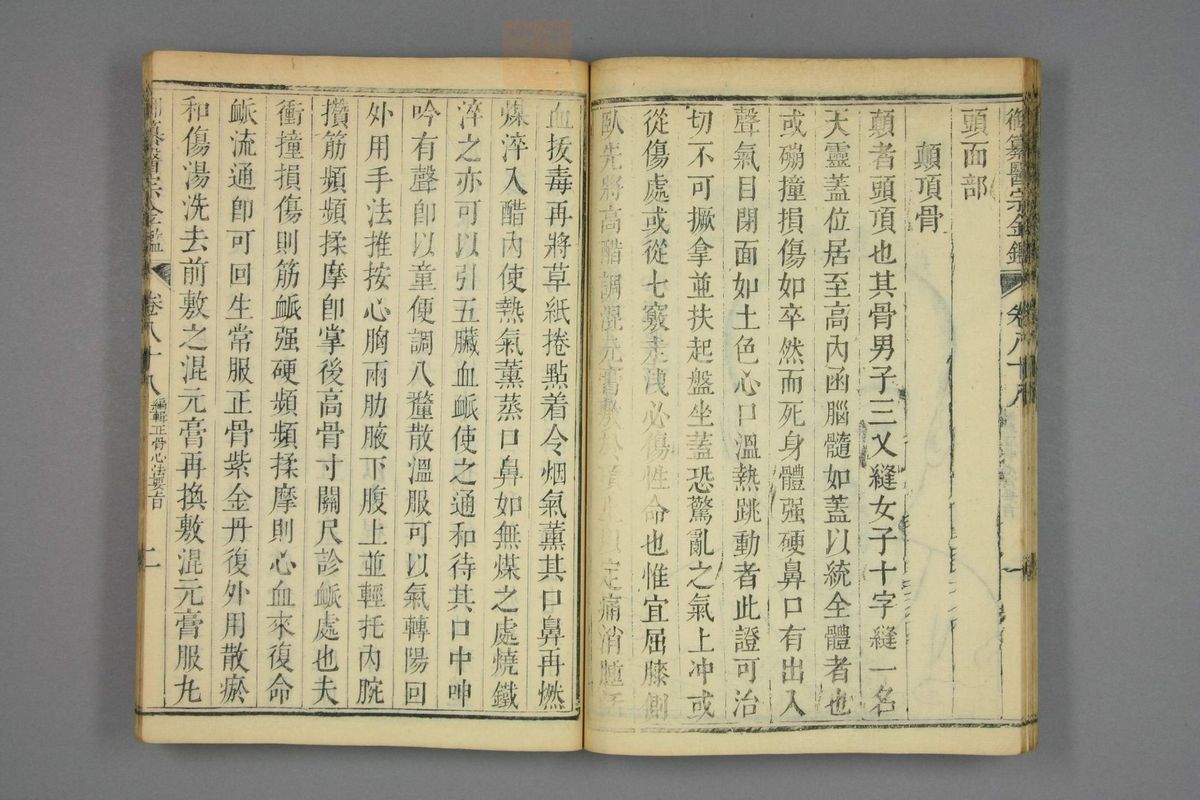 御纂醫宗金鑑 卷八十八 一
頭面部
顛頂骨
顛者頭頂也其骨男子三叉縫女子十字縫一名
天靈蓋位居至高內函腦髓如蓋以統全體者也
或磞撞損傷如卒然而死身體强硬鼻口有出入
聲氣目閉面如土色心口溫熱跳動者此證可治
切不可撅拿並扶起盤坐蓋恐驚亂之氣上冲或
從傷處或從七竅走洩必傷性命也惟宜屈膝側
臥先將高醋調混元膏敷於 定痛消腫
血拔毒再將草紙捲點着令烟氣薰其口鼻再燃
煤淬入醋內使熱氣薰蒸口鼻如無煤之處燒鐵
淬之亦可以引五臟血脈使之通和待其口中呻
吟有聲卽以童便調八釐散溫服可以氣轉陽回
外用手法推按心胸兩肋腋下腹上並輕托內腕
攢筋頻頻揉摩卽掌後高骨寸關尺診脈處也夫
衝撞損傷則筋脈强硬頻頻揉摩則心血來復命
脈流通卽可回生常服正骨紫金丹復外用散瘀
和傷湯洗去前敷之混元膏再換敷混元膏服九
御纂醫宗金鑑 卷八十八 編輯正骨心法要旨 二